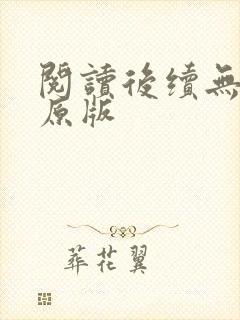 閱讀後續無
原版
葬花翼